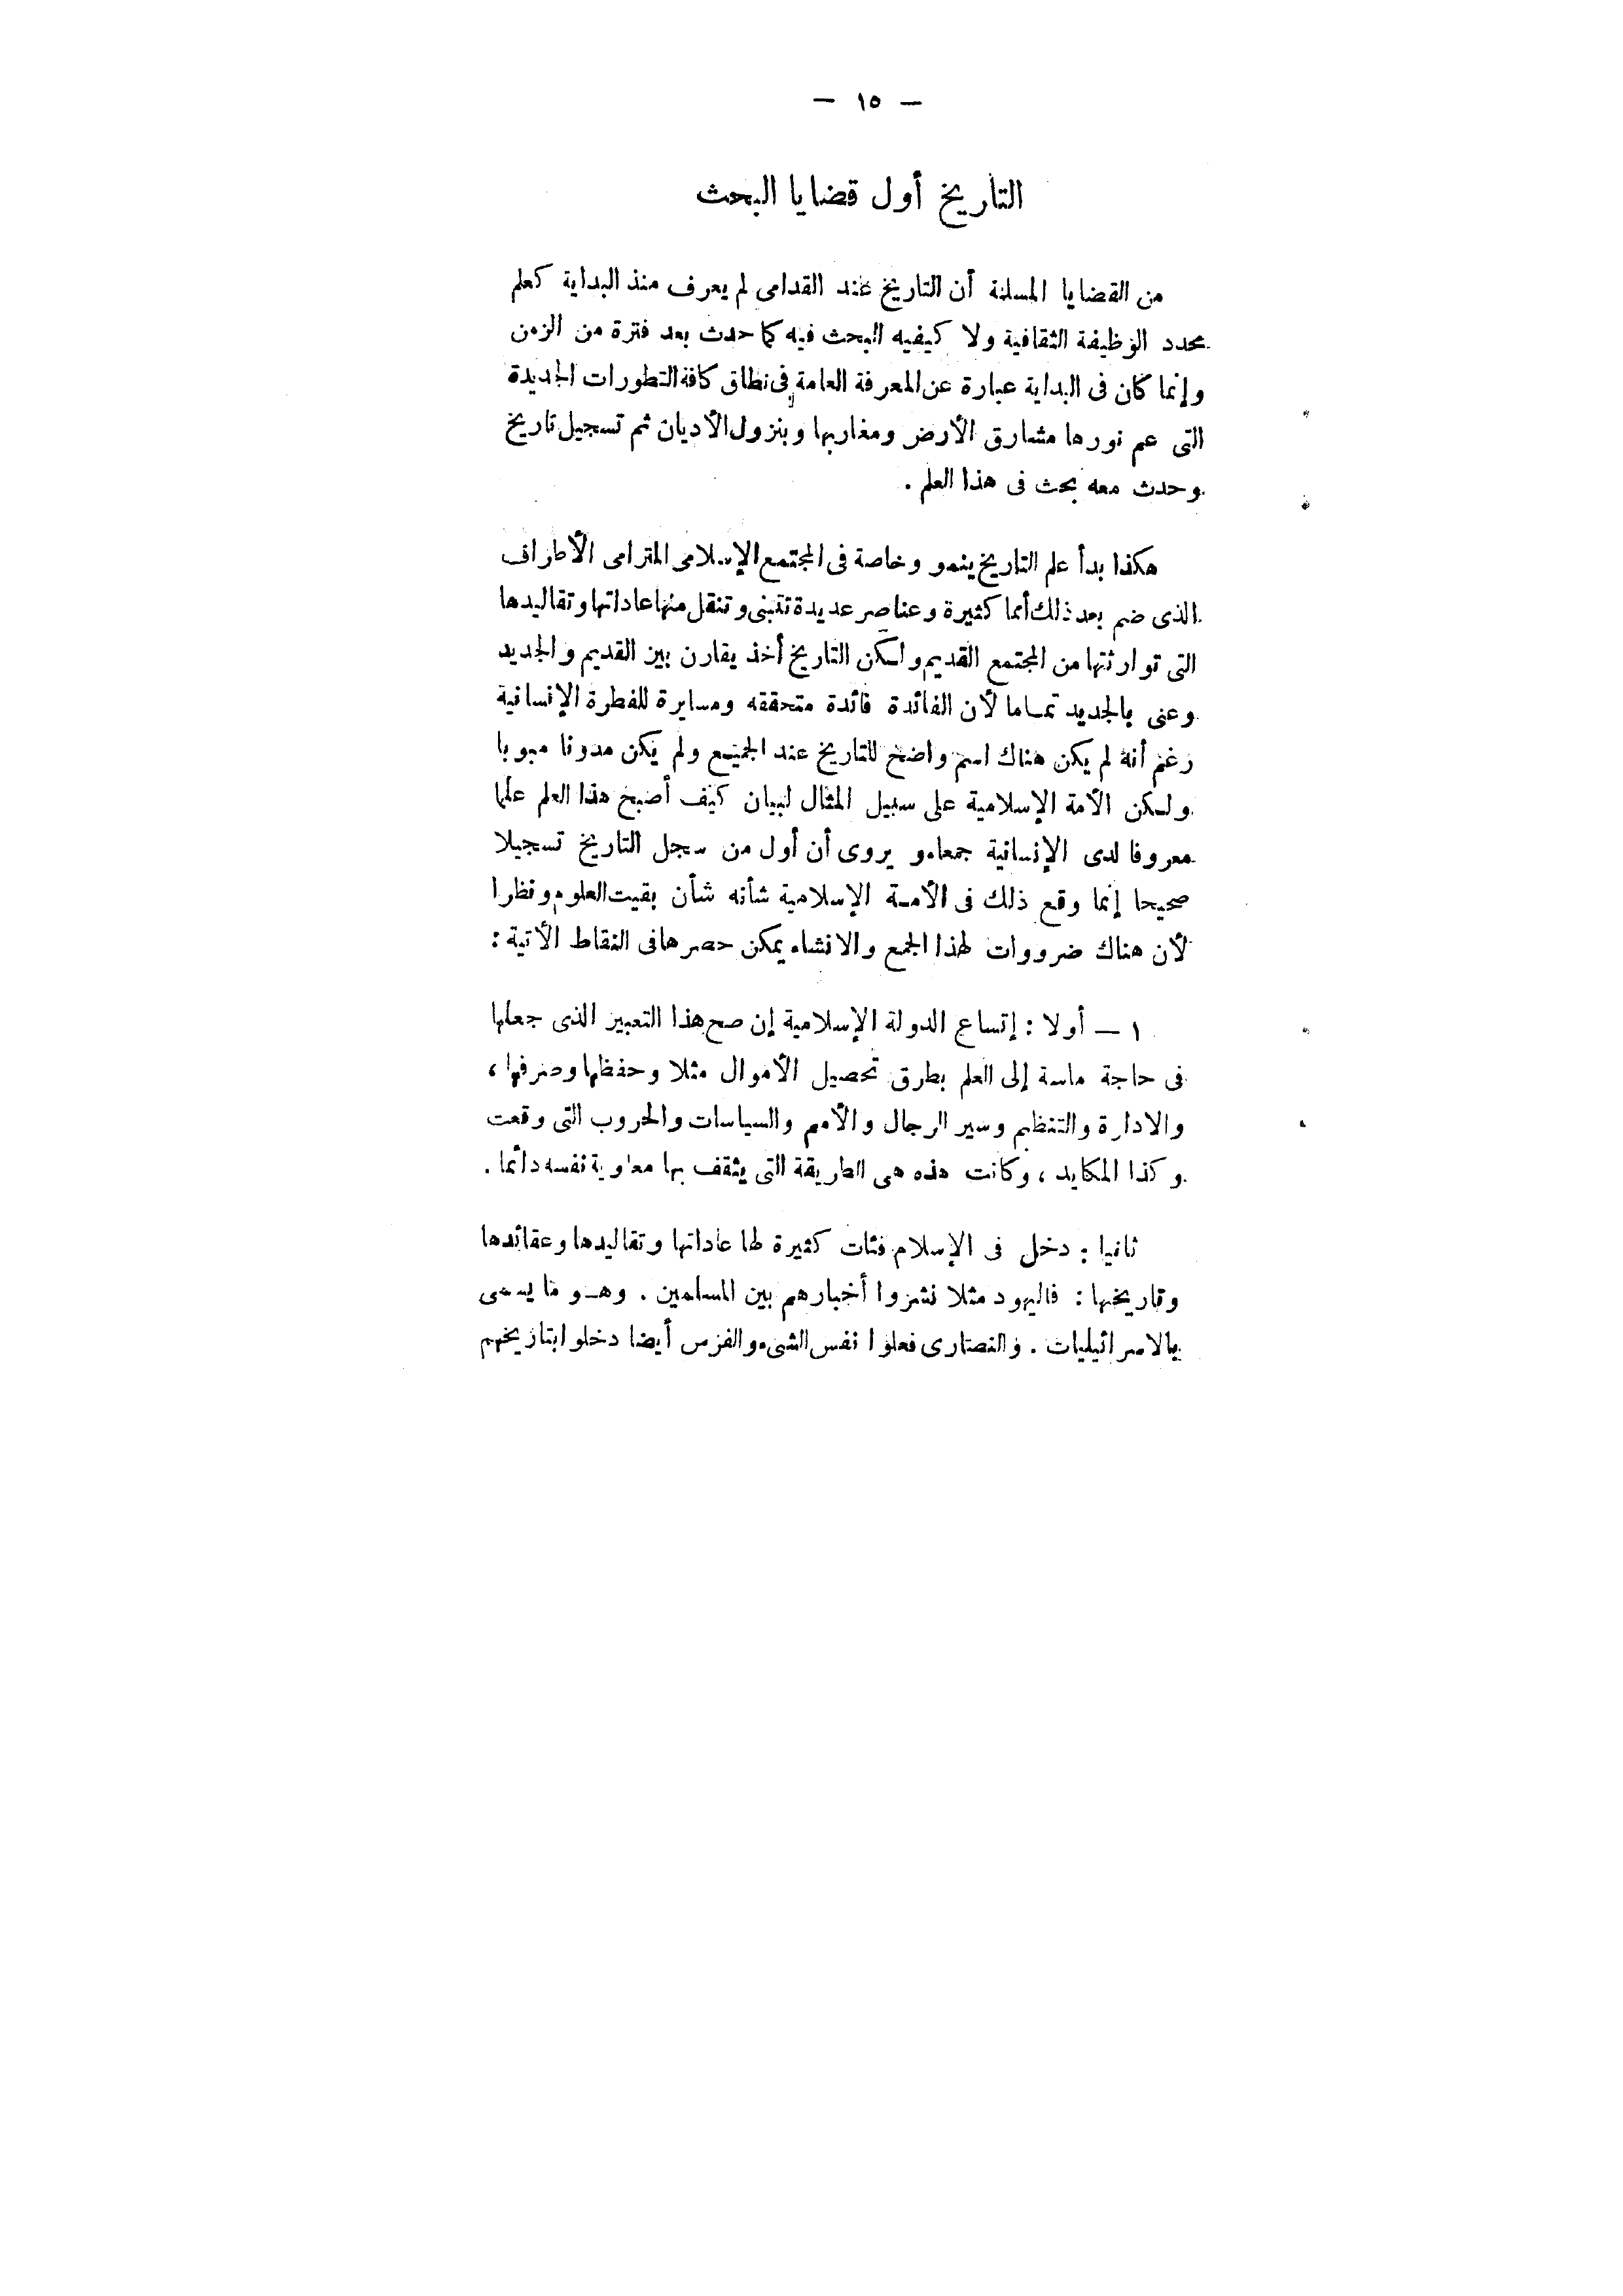 — ١٥ —
التاريخ أول قضايا البحث
من القضايا المسلمة أن التاريخ عند القدامى لم يعرف منذ البداية كعلم
محدد الوظيفة الثقافية ولا كيفيه البحث فيه كما حدث بعد فترة من الزمن
وإنما كان فى البداية عبارة عن المعرفة العامة فى نطاق كافة التطورات الجديدة
التى عم نورها مشارق الأرض ومغاربها وبنزول الأديان ثم تسجيل تاريخ
وحدث معه بحث فى هذا العلم .
هكذا بدأ علم التاريخ ينمو وخاصة فى المجتمع الإسلامى المترامى الأطراف
الذى ضم بعد ذلك أمما كثيرة وعناصر عديدة تتبنى وتنقل منها عاداتها وتقاليدها
التى توارثتها من المجتمع القديم ولكن التاريخ أخذ يقارن بين القديم والجديد
وعنى بالجديد تماما لأن الفائدة فائدة متحققه ومسايرة للفطرة الإنسانية
رغم أنه لم يكن هناك اسم واضح للتاريخ عند الجميع ولم يكن مدونا مبوبا
ولكن الأمة الإسلامية على سبيل المثال لبيان كيف أصبح هذا العلم علما
معروفا لدى الإنسانية جمعاء و يروى أن أول من سجل التاريخ تسجيلا
صحيحا إنما وقع ذلك فى الأمة الإسلامية شأنه شأن بقيت العلوم ونظرا
لأن هناك ضرووات لهذا الجمع والانشاء يمكن حصرها فى النقاط الأتية :
١ — أولا : إتساع الدولة الإسلامية إن صح هذا التعبير الذى جعلها
فى حاجة ماسة إلى العلم بطرق تحصيل الأموال مثلا وحفظها وصرفها ،
والادارة والتنظيم وسير الرجال والأمم والسياسات والحروب التى وقعت
وكذا المكايد ، وكانت هذه هى الطريقة التى يثقف بها معاوية نفسه دائما .
ثانيا : دخل فى الإسلام فئات كثيرة لها عاداتها وتقاليدها وعقائدها
وتاريخها : فاليهود مثلا نشروا أخبارهم بين المسلمين . وهو ما يسمى
بالاسرائيليات . والنصارى فعلوا نفس الشىء والفرس أيضا دخلوا بتاريخهم